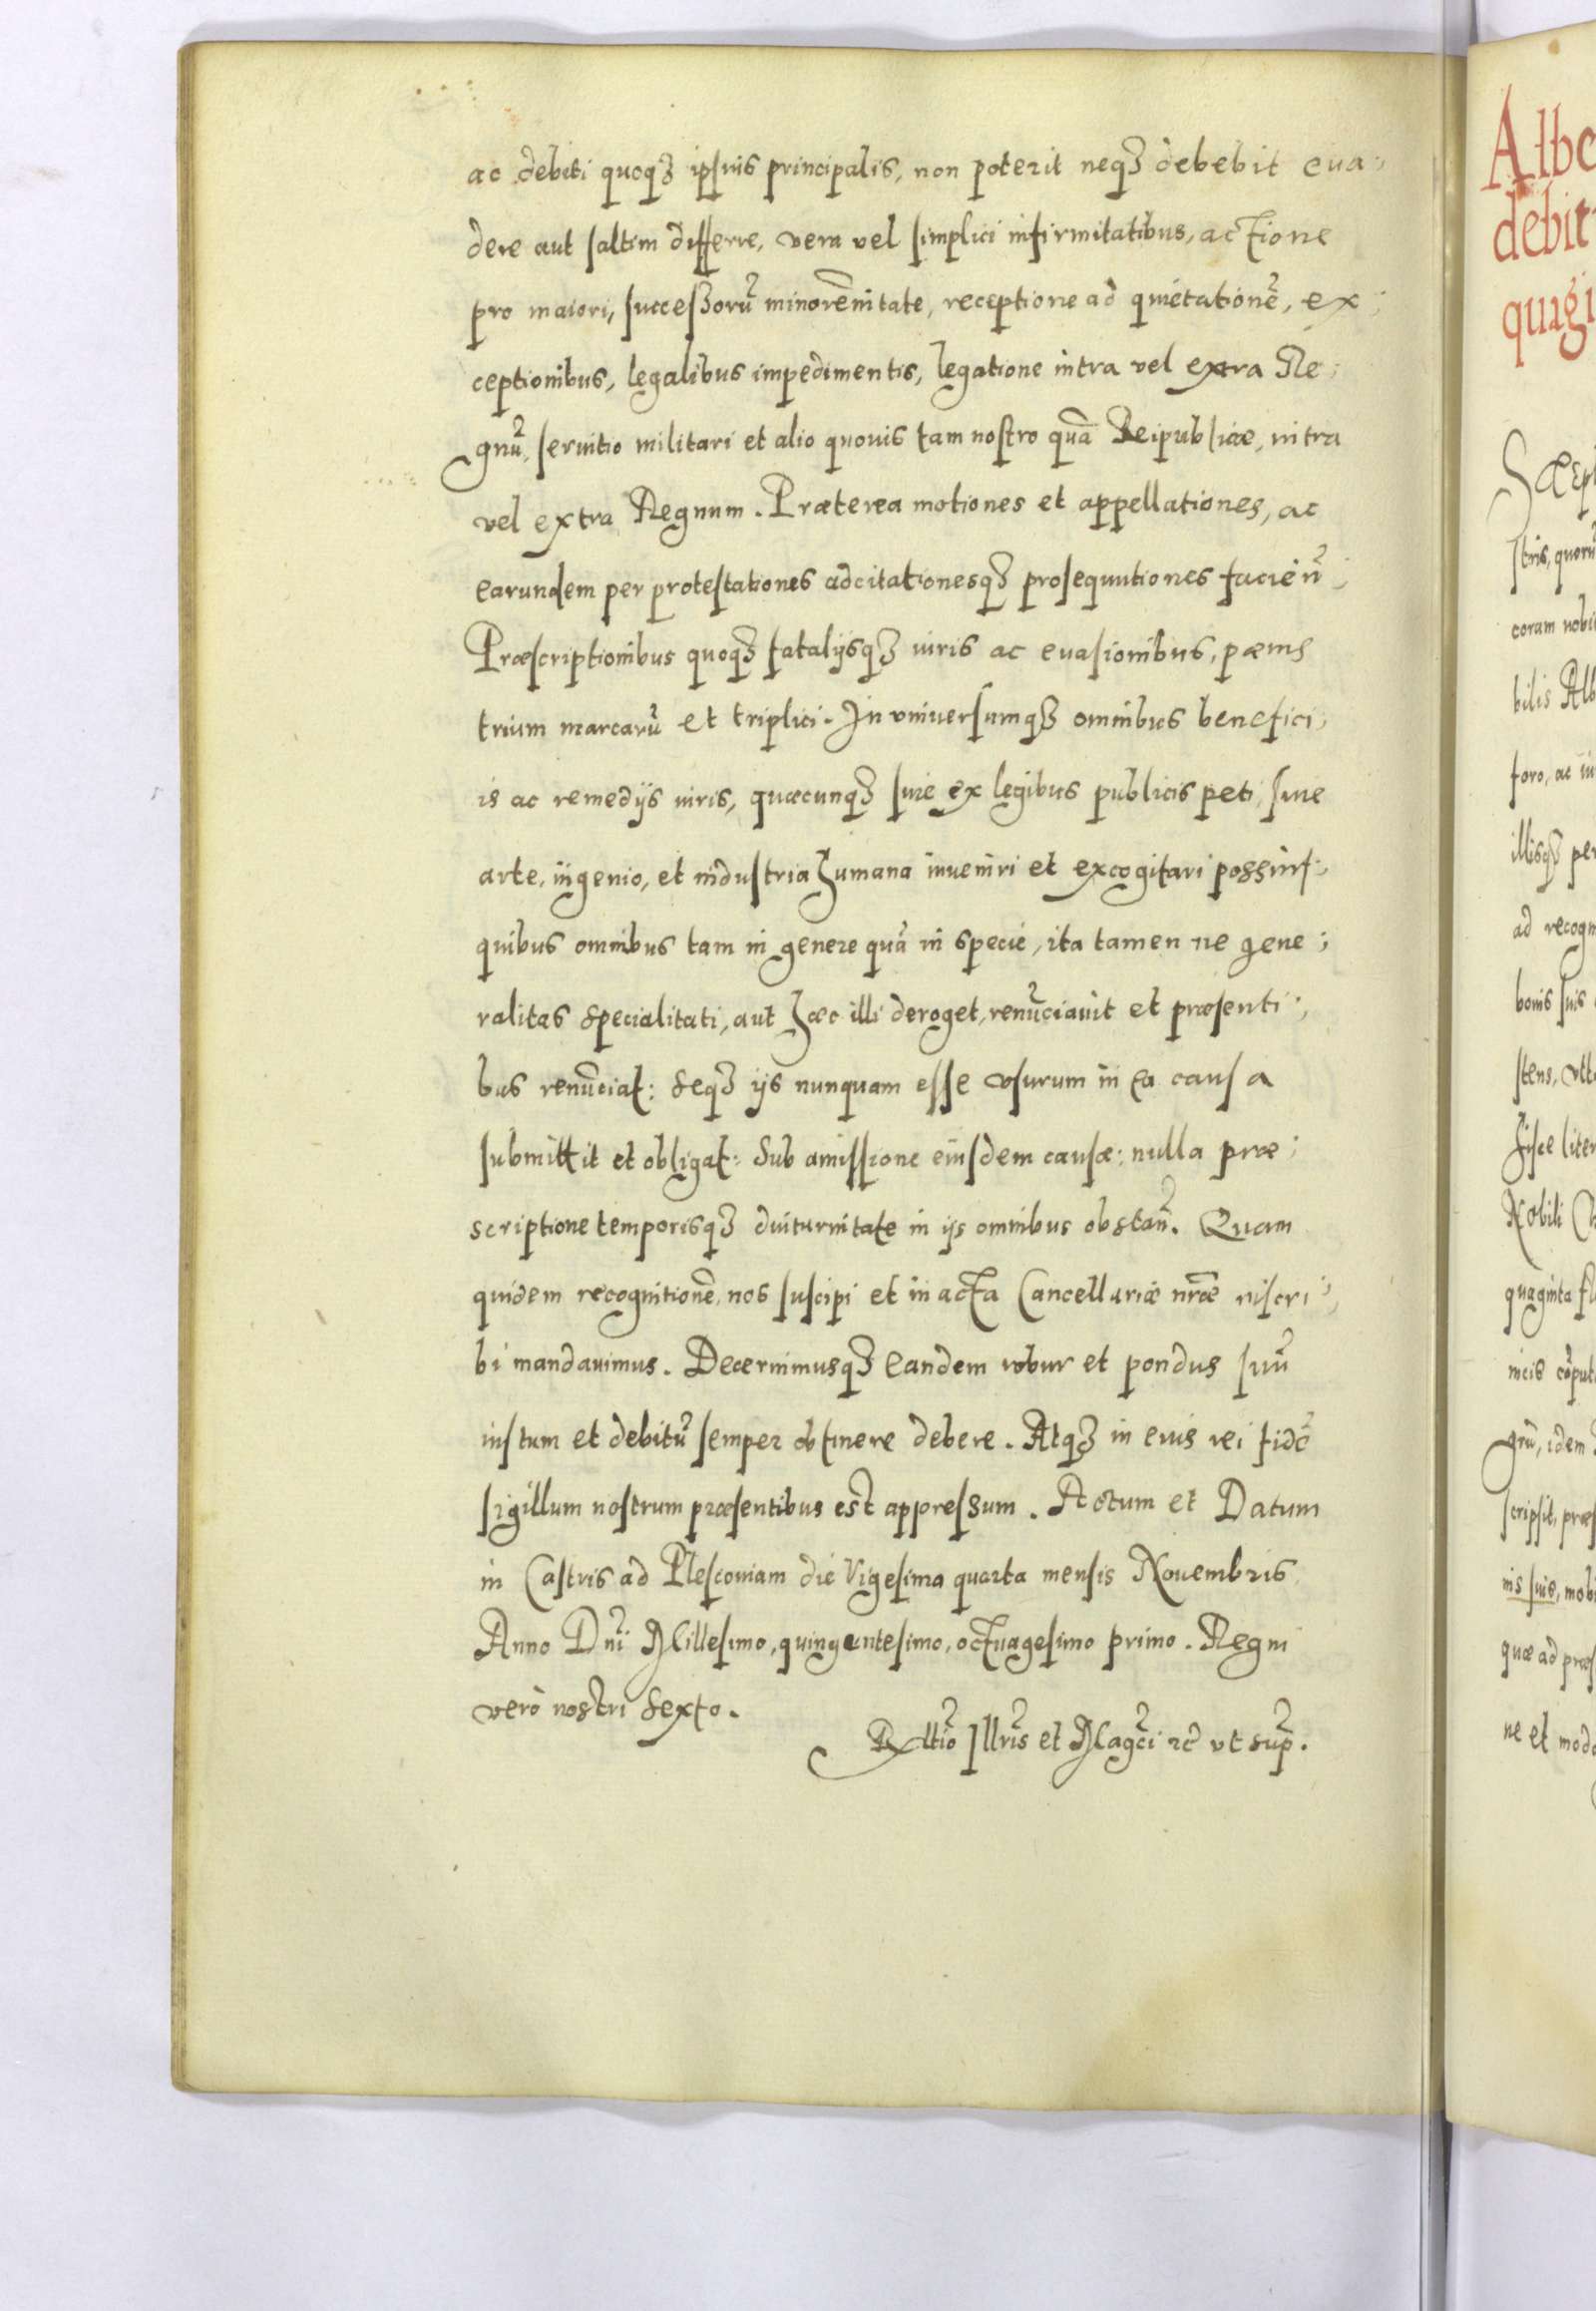 ac debiti quoqꝫ ipsius principalis, non poterit neqꝫ debebit eua,
dere aut saltim differre, vera vel simplici infirmitatibus, actione
pro maiori, successorũ minorẽnitate, receptione ad quietationẽ, ex,
ceptionibus, legalibus impedimentis, legatione intra vel extra Re,
gnũ, seruitio militari et alio quouis tam nostro quã Reipublicæ, intra
vel extra Regnum. Præterea motiones et appellationes, ac
earundem per protestationes adcitationesqꝫ prosequutiones facieñ,
Præscriptionibus quoqꝫ fatalijsqꝫ iuris ac euasionibus, pæms
trium marcarũ et triplici. In vniuersumqꝫ omnibus benefici,
is ac remedijs iuris, quæcunqꝫ siue ex legibus publicis peti, siue
arte, ingenio, et industria humana inueniri et excogitari possint,
quibus omnibus tam in genere quã in specie, ita tamen ne gene,
ralitas specialitati, aut hæc illi deroget, renũciauit et præsenti,
bus renũciat: seqꝫ ijs nunquam esse vsurum in ea causa
submittit et obligat: sub amissione eiusdem causæ: nulla præ,
scriptione temporisqꝫ diuturnitate in ijs omnibus obstañ. Quam
quidem recognitionẽ, nos suscipi et in acta Cancellariæ nr̃æ inscri,
bi mandauimus. Decernimusqꝫ eandem robur et pondus suũ
iustum et debitũ semper obtinere debere. Atqꝫ in euis rei fidẽ
sigillum nostrum præsentibus est appressum. Actum et Datum
in Castris ad Plescouiam die Vigesima quarta mensis Nouembris
Anno Dñi Millesimo, quingentesimo, octuagesimo primo. Regni
vero nostri sexto.
Rl̃tio Illr̃is et Magc̃i ꝛc̃ vt sup̃.
Albe
debit
quagi
Sæpi
stris, quorũ
coram nobi
bilis Alb
foro, ac iu
illisqꝫ per
ad recogn
bonis suis
stens, vt
Fisce liter
Nobili C
quaginta fl
nicis cõput
grũ, idem
scripsit, præs
nis suis, mobi
quæ ad præs
ne et modo